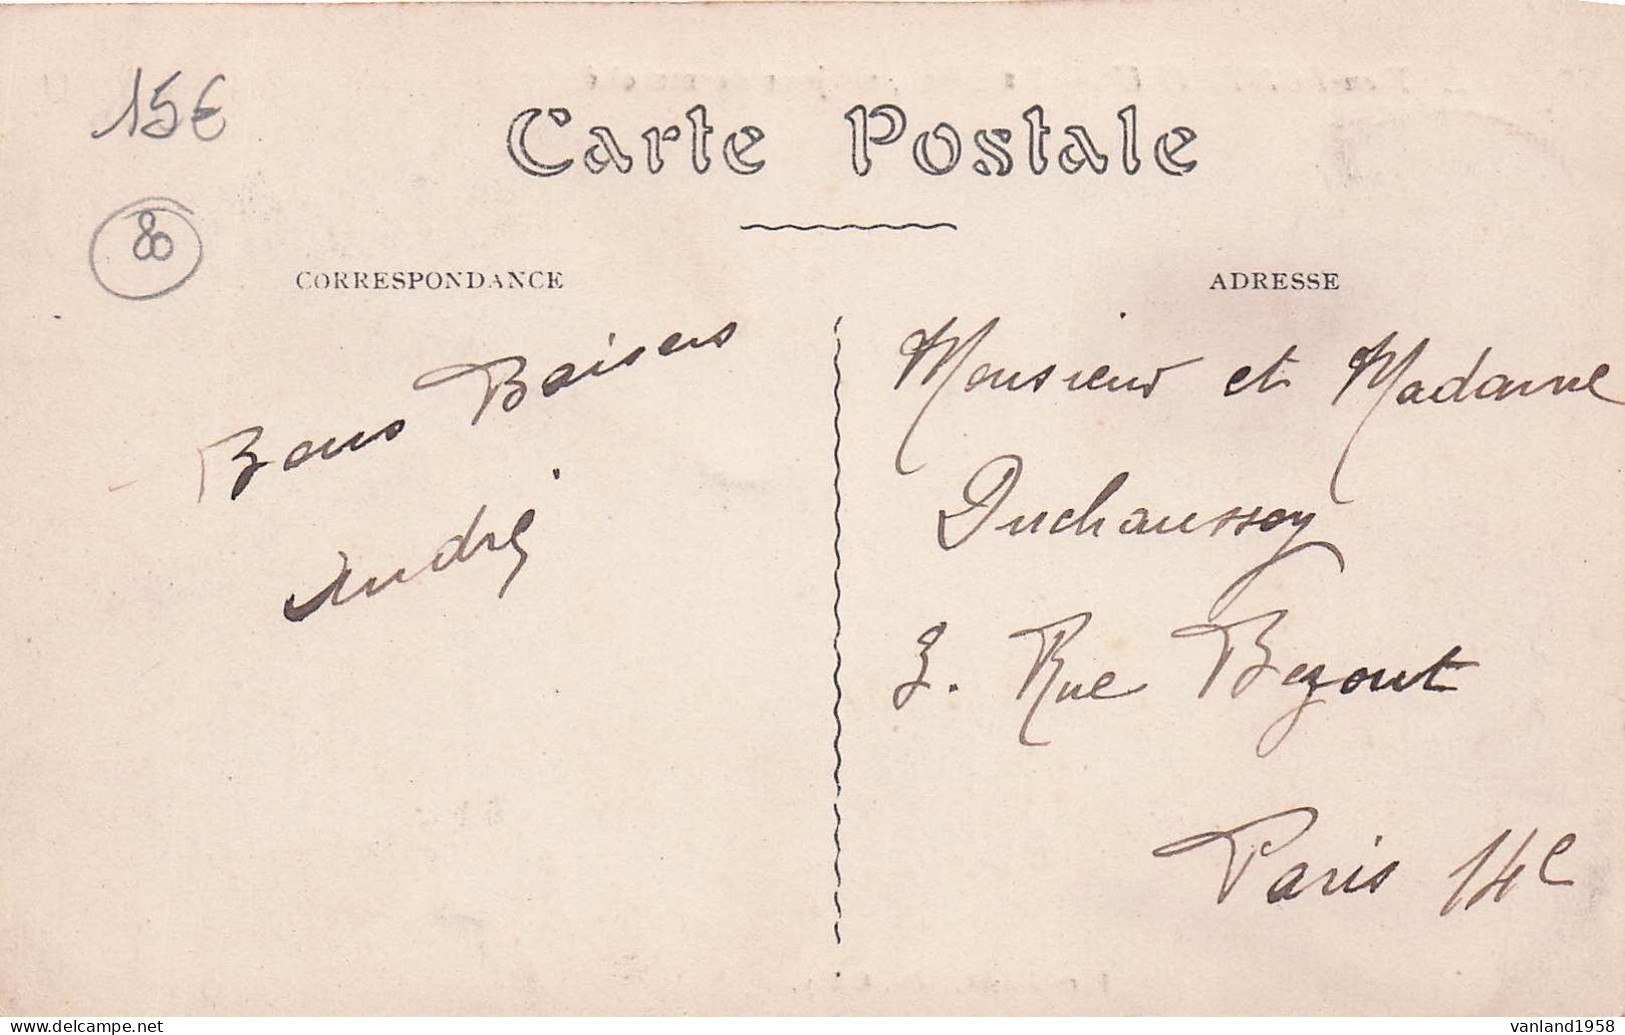 15€
80
Carte Postale
CORRESPONDANCE
Bons Baisers
André
ADRESSE
Monsieur et Madame
Duchaussoy
3. Rue Bezout
Paris 14e
www.delcampe.net
vanland1958